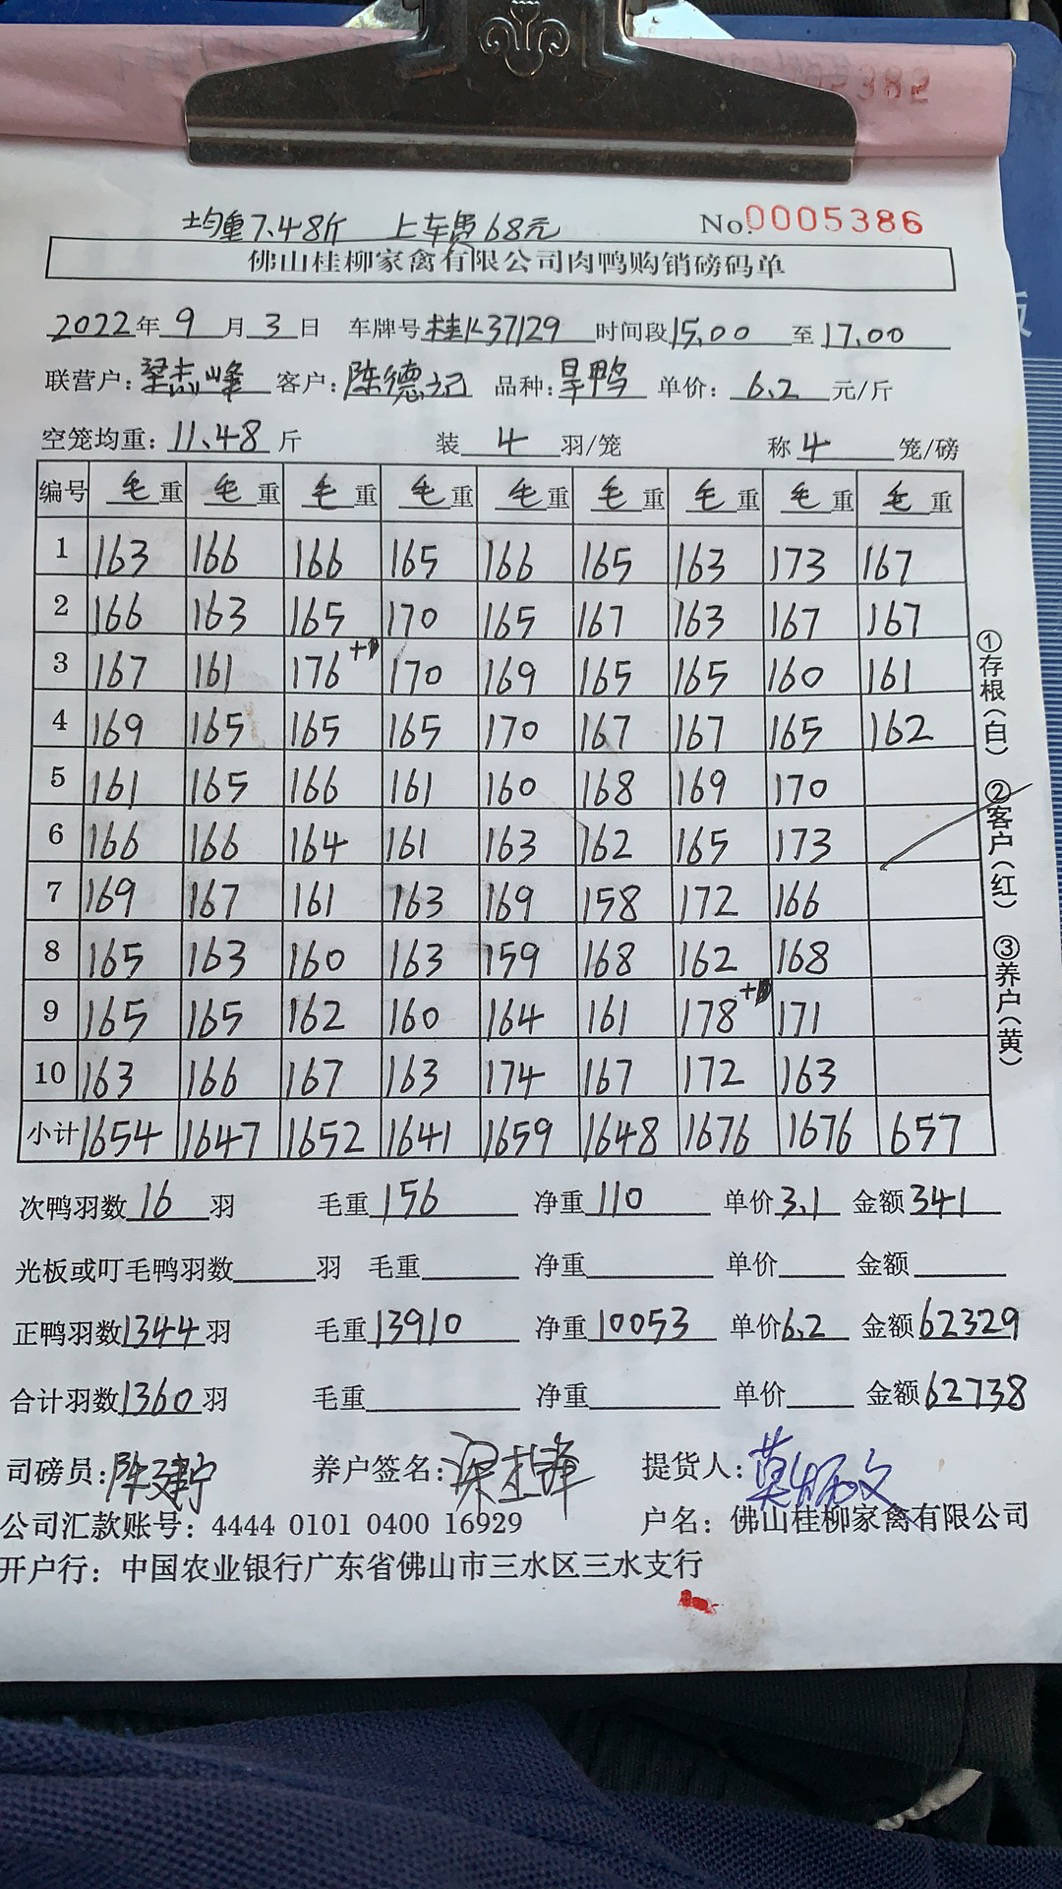 均重7.48斤 上车费68元 No.0005386
佛山桂柳家禽有限公司肉鸭购销磅码单
2022年9月3日 车牌号桂K37129 时间段15.00至17.00
联营户:梁志峰 客户:陈德记 品种:旱鸭 单价:6.2元/斤
空笼均重:11.48斤 装4羽/笼 称4笼/磅
编号 毛重 毛重 毛重 毛重 毛重 毛重 毛重 毛重 毛重
1 163 166 166 165 166 165 163 173 167
2 166 163 165 170 165 167 163 167 167
3 167 161 176 170 169 165 165 160 161
4 169 165 165 165 170 167 167 165 162
5 161 165 166 161 160 168 169 170
6 166 166 164 161 163 162 165 173
7 169 167 161 163 169 158 172 166
8 165 163 160 163 159 168 162 168
9 165 165 162 160 164 161 178 171
10 163 166 167 163 174 167 172 163
小计 1654 1647 1652 1641 1659 1648 1676 1676 657
①存根(白) ②客户(红) ③养户(黄)
次鸭羽数16羽 毛重156 净重110 单价3.1 金额341
光板或叮毛鸭羽数 羽 毛重 净重 单价 金额
正鸭羽数1344羽 毛重13910 净重10053 单价6.2 金额62329
合计羽数1360羽 毛重 净重 单价 金额62738
司磅员:陈建宁 养户签名:梁志峰 提货人:
公司汇款账号:4444 0101 0400 16929 户名:佛山桂柳家禽有限公司
开户行:中国农业银行广东省佛山市三水区三水支行